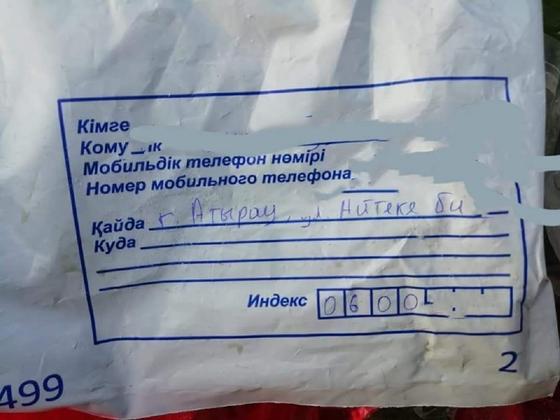 Кімге
Кому
Мобильдік телефон нөмірі
Номер мобильного телефона
Қайда г. Атырау, ул Айтеке би
Куда
Индекс 0600
2
499